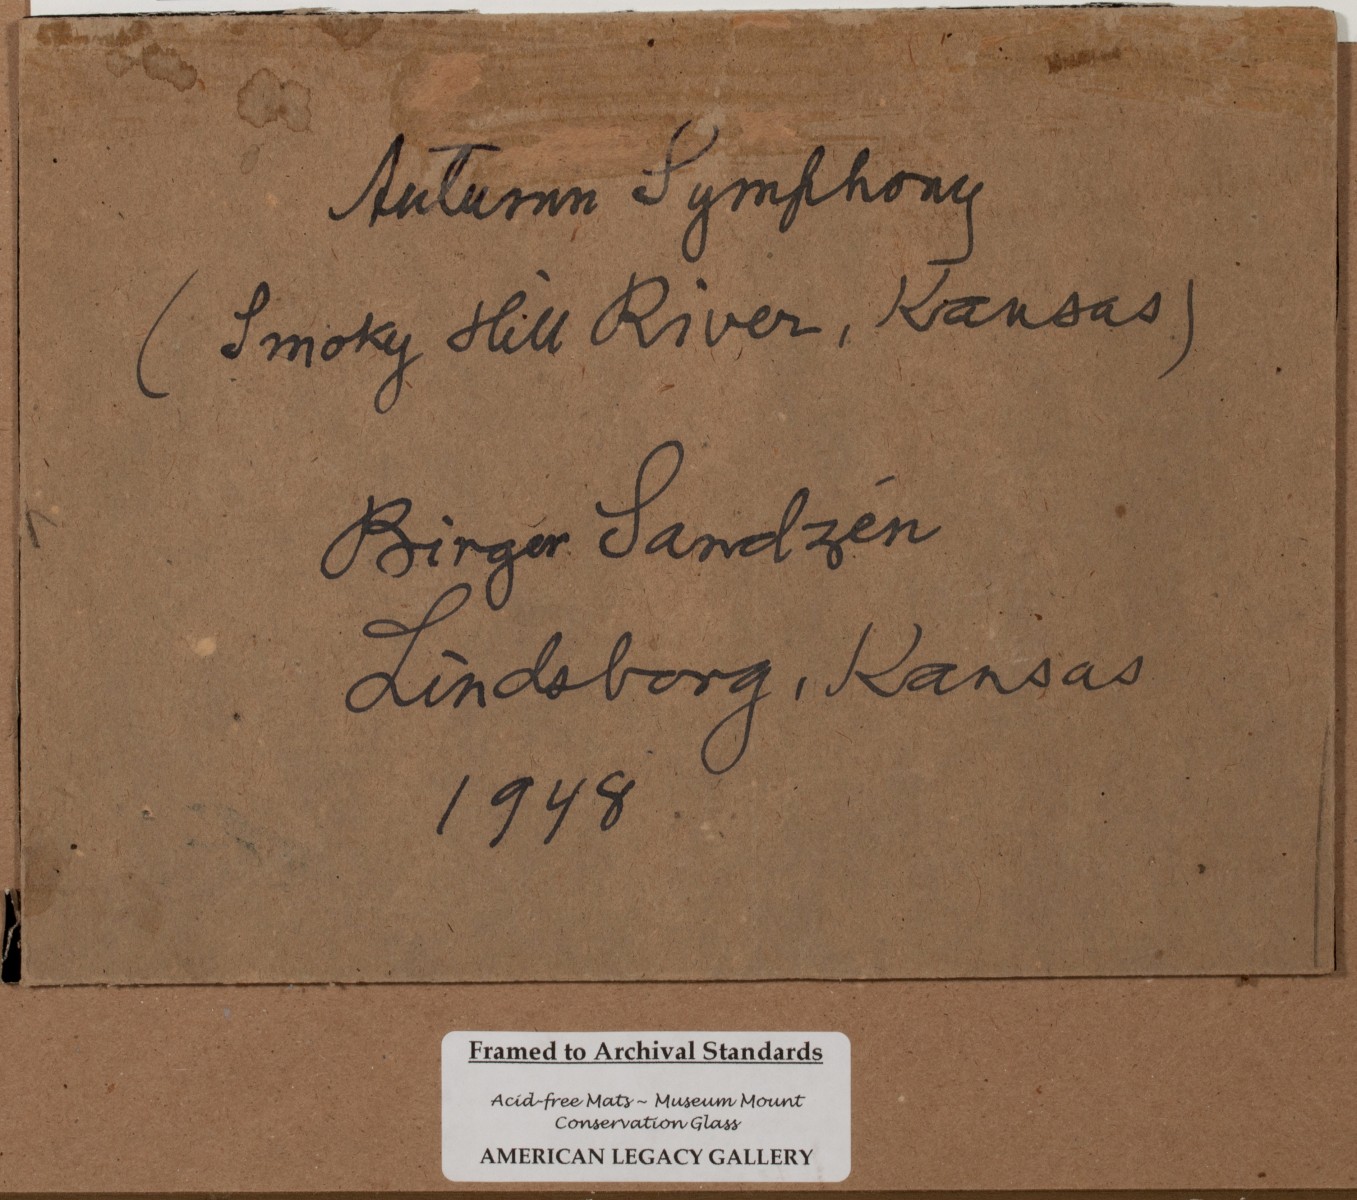 Autumn Symphony
(Smoky Hill River, Kansas)
Birger Sandzén
Lindsborg, Kansas
1948
Framed to Archival Standards
Acid-free Mats ~ Museum Mount
Conservation Glass
AMERICAN LEGACY GALLERY